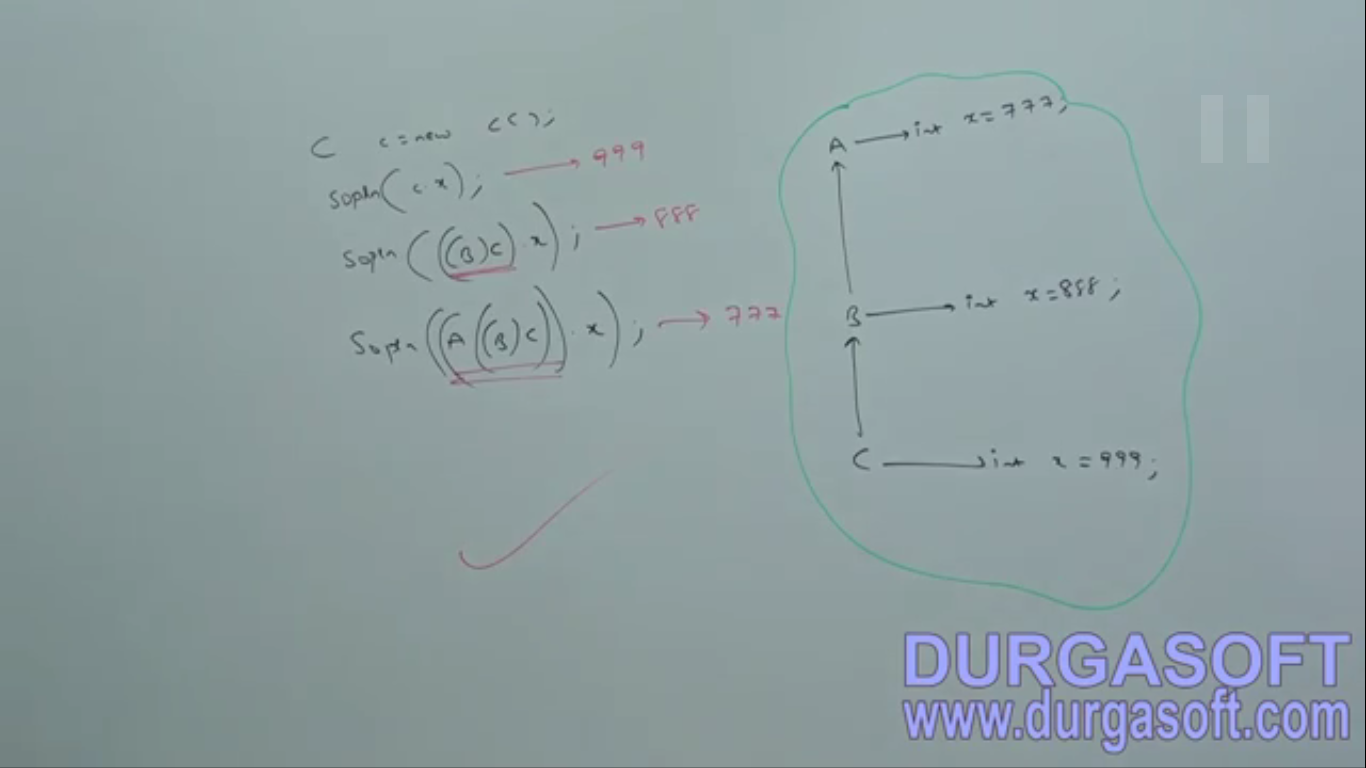 C c = new C();
Sopln(c.x); → 999
Sopln(((B)c).x); → 888
Sopln(((A((B)c)).x); → 777
A → int x = 777;
B → int x = 888;
C → int x = 999;
DURGASOFT
www.durgasoft.com